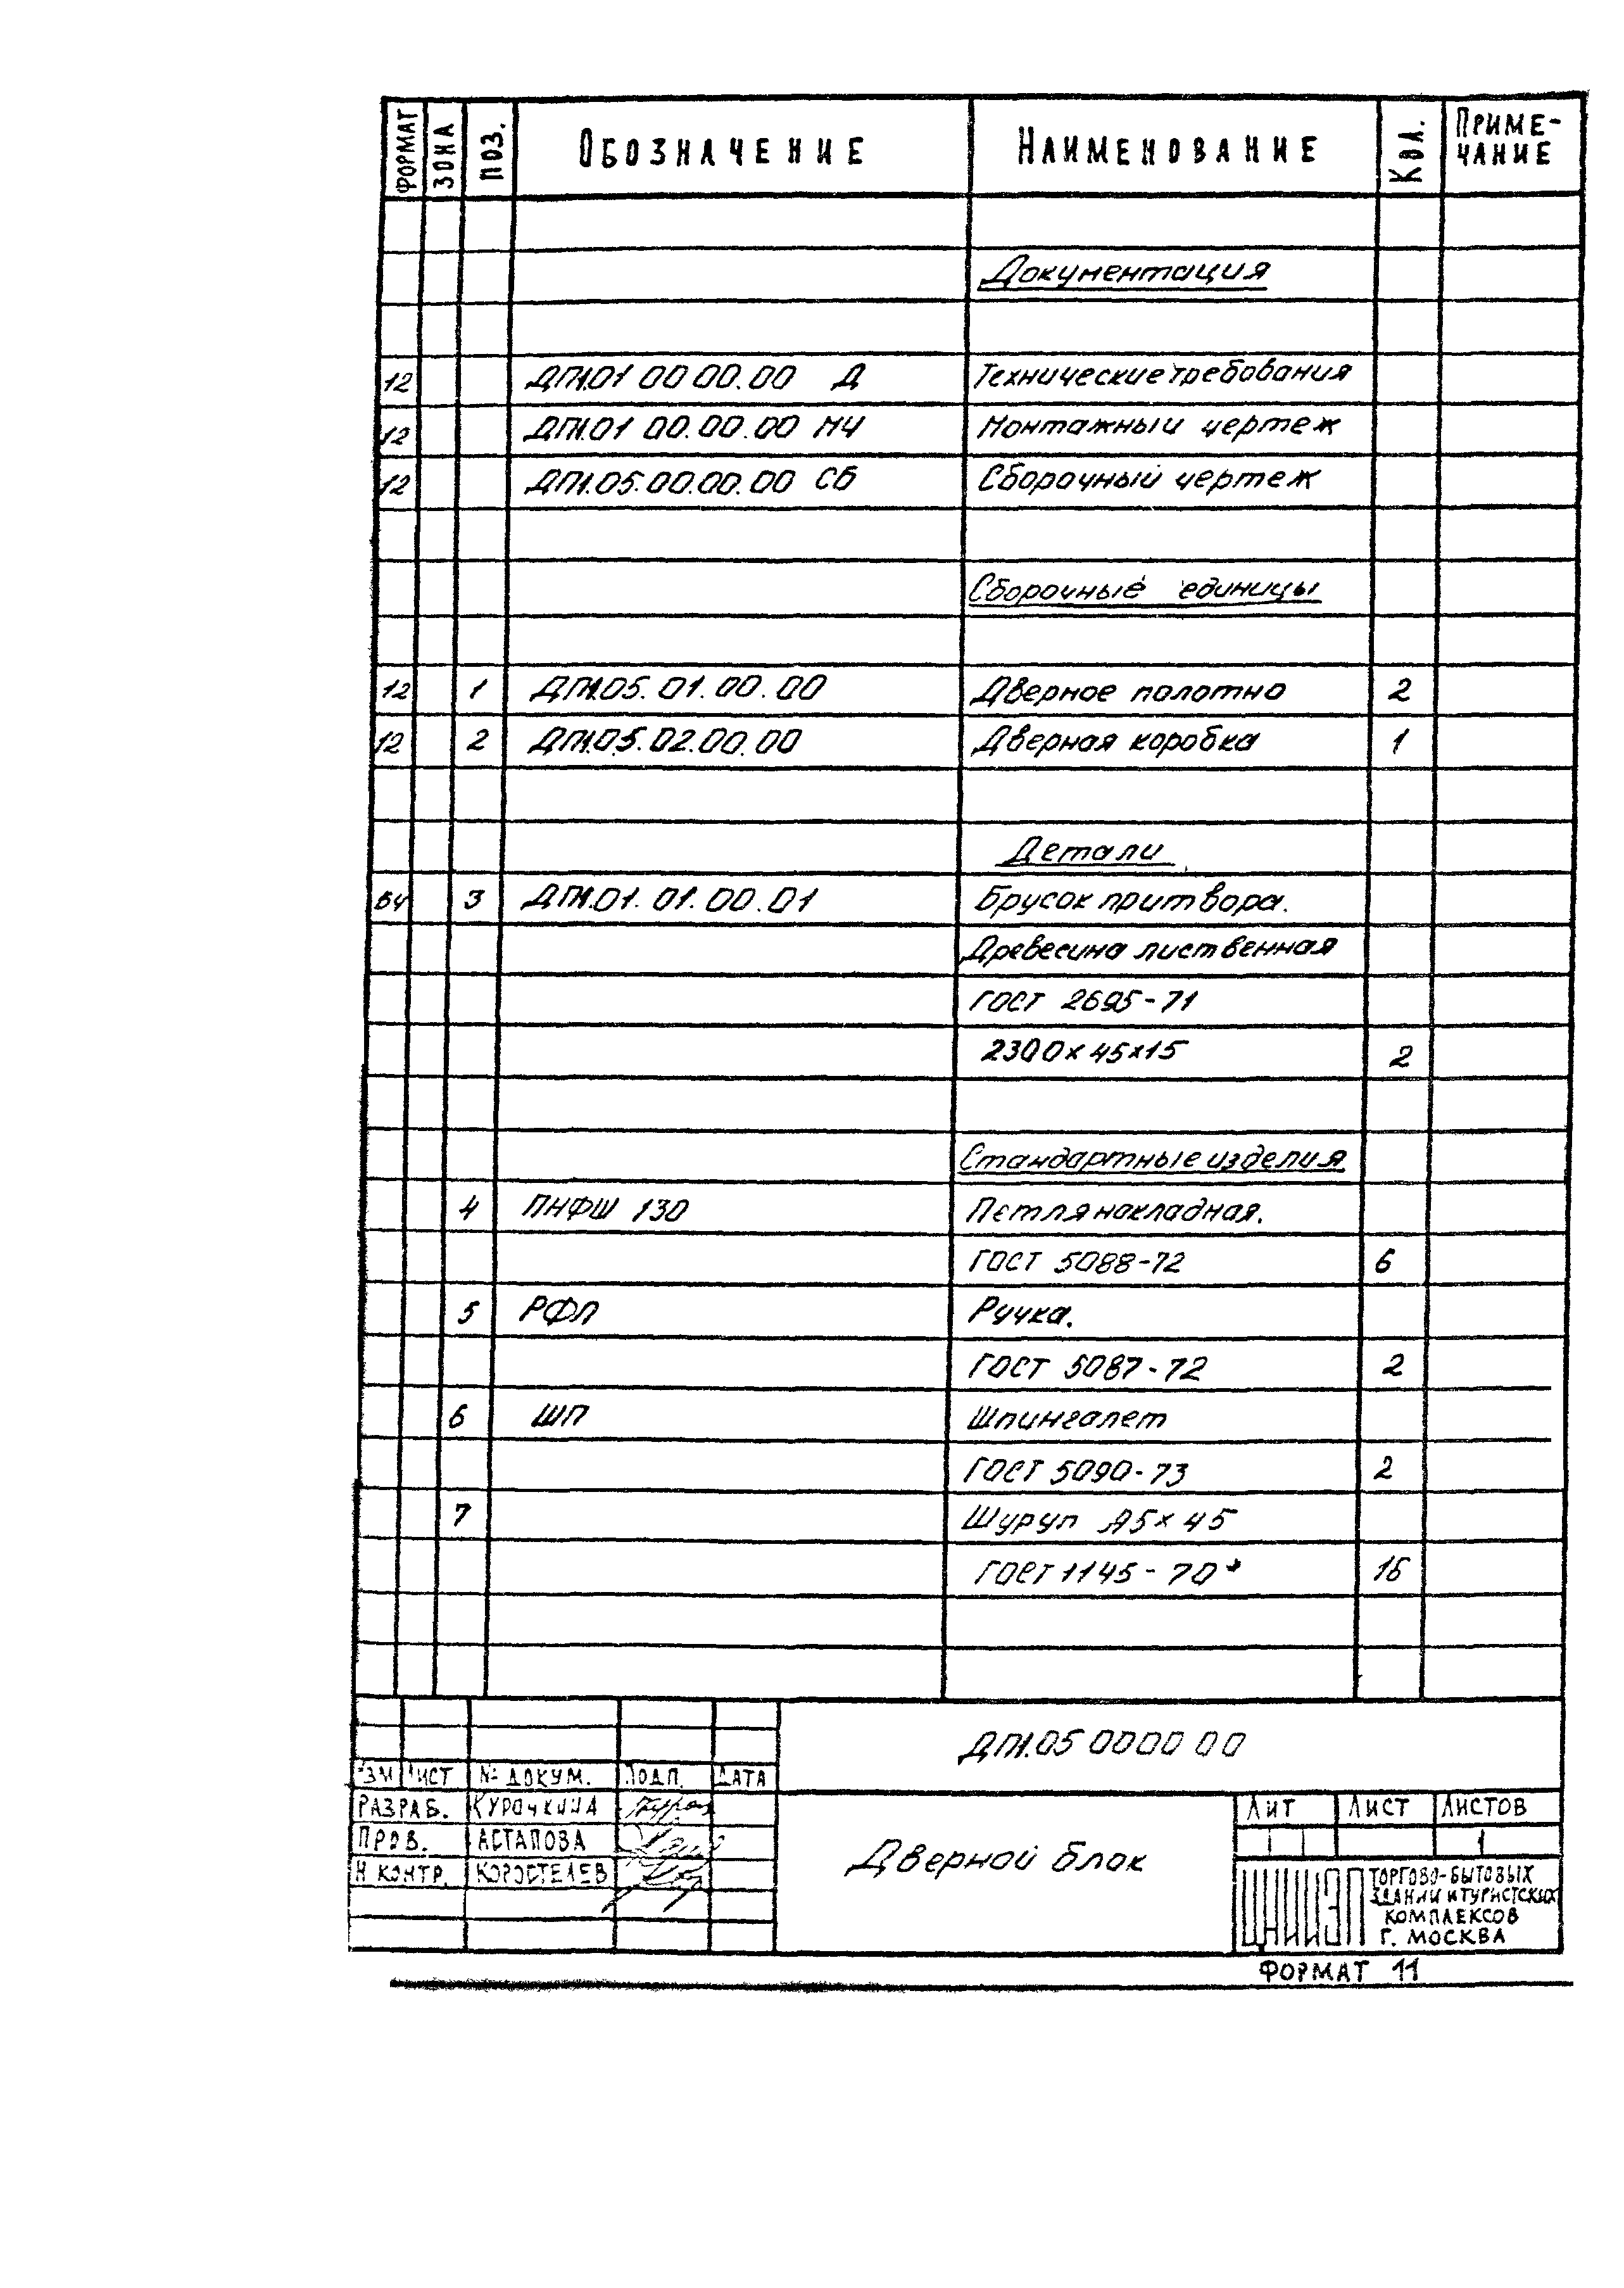 ФОРМАТ ЗОНА ПОЗ. ОБОЗНАЧЕНИЕ НАИМЕНОВАНИЕ КОЛ. ПРИМЕ-
ЧАНИЕ
Документация
12 ДП1.01 00 00.00 Д Технические требования
12 ДП1.01 00.00.00 МЧ Монтажный чертеж
12 ДП1.05.00.00.00 СБ Сборочный чертеж
Сборочные единицы
12 1 ДП1.05.01.00.00 Дверное полотно 2
12 2 ДП1.05.02.00.00 Дверная коробка 1
Детали
БЧ 3 ДП1.01.01.00.01 Брусок притвора.
Древесина лиственная
ГОСТ 2695-71
2300х45х15 2
Стандартные изделия
4 ПНФШ 130 Петля накладная.
ГОСТ 5088-72 6
5 РФЛ Ручка.
ГОСТ 5087-72 2
6 ШП Шпингалет
ГОСТ 5090-73 2
7 Шуруп А5х45
ГОСТ 1145-70* 16
ДП1.05 0000 00
ИЗМ ЛИСТ № ДОКУМ. ПОДП. ДАТА
РАЗРАБ. КУРОЧКИНА
ПРОВ. АСТАПОВА
Н КОНТР. КОРОСТЕЛЕВ
Дверной блок
ЛИТ ЛИСТ ЛИСТОВ
1
ЦНИИЭП ТОРГОВО-БЫТОВЫХ
ЗДАНИЙ И ТУРИСТСКИХ
КОМПЛЕКСОВ
Г. МОСКВА
ФОРМАТ 11